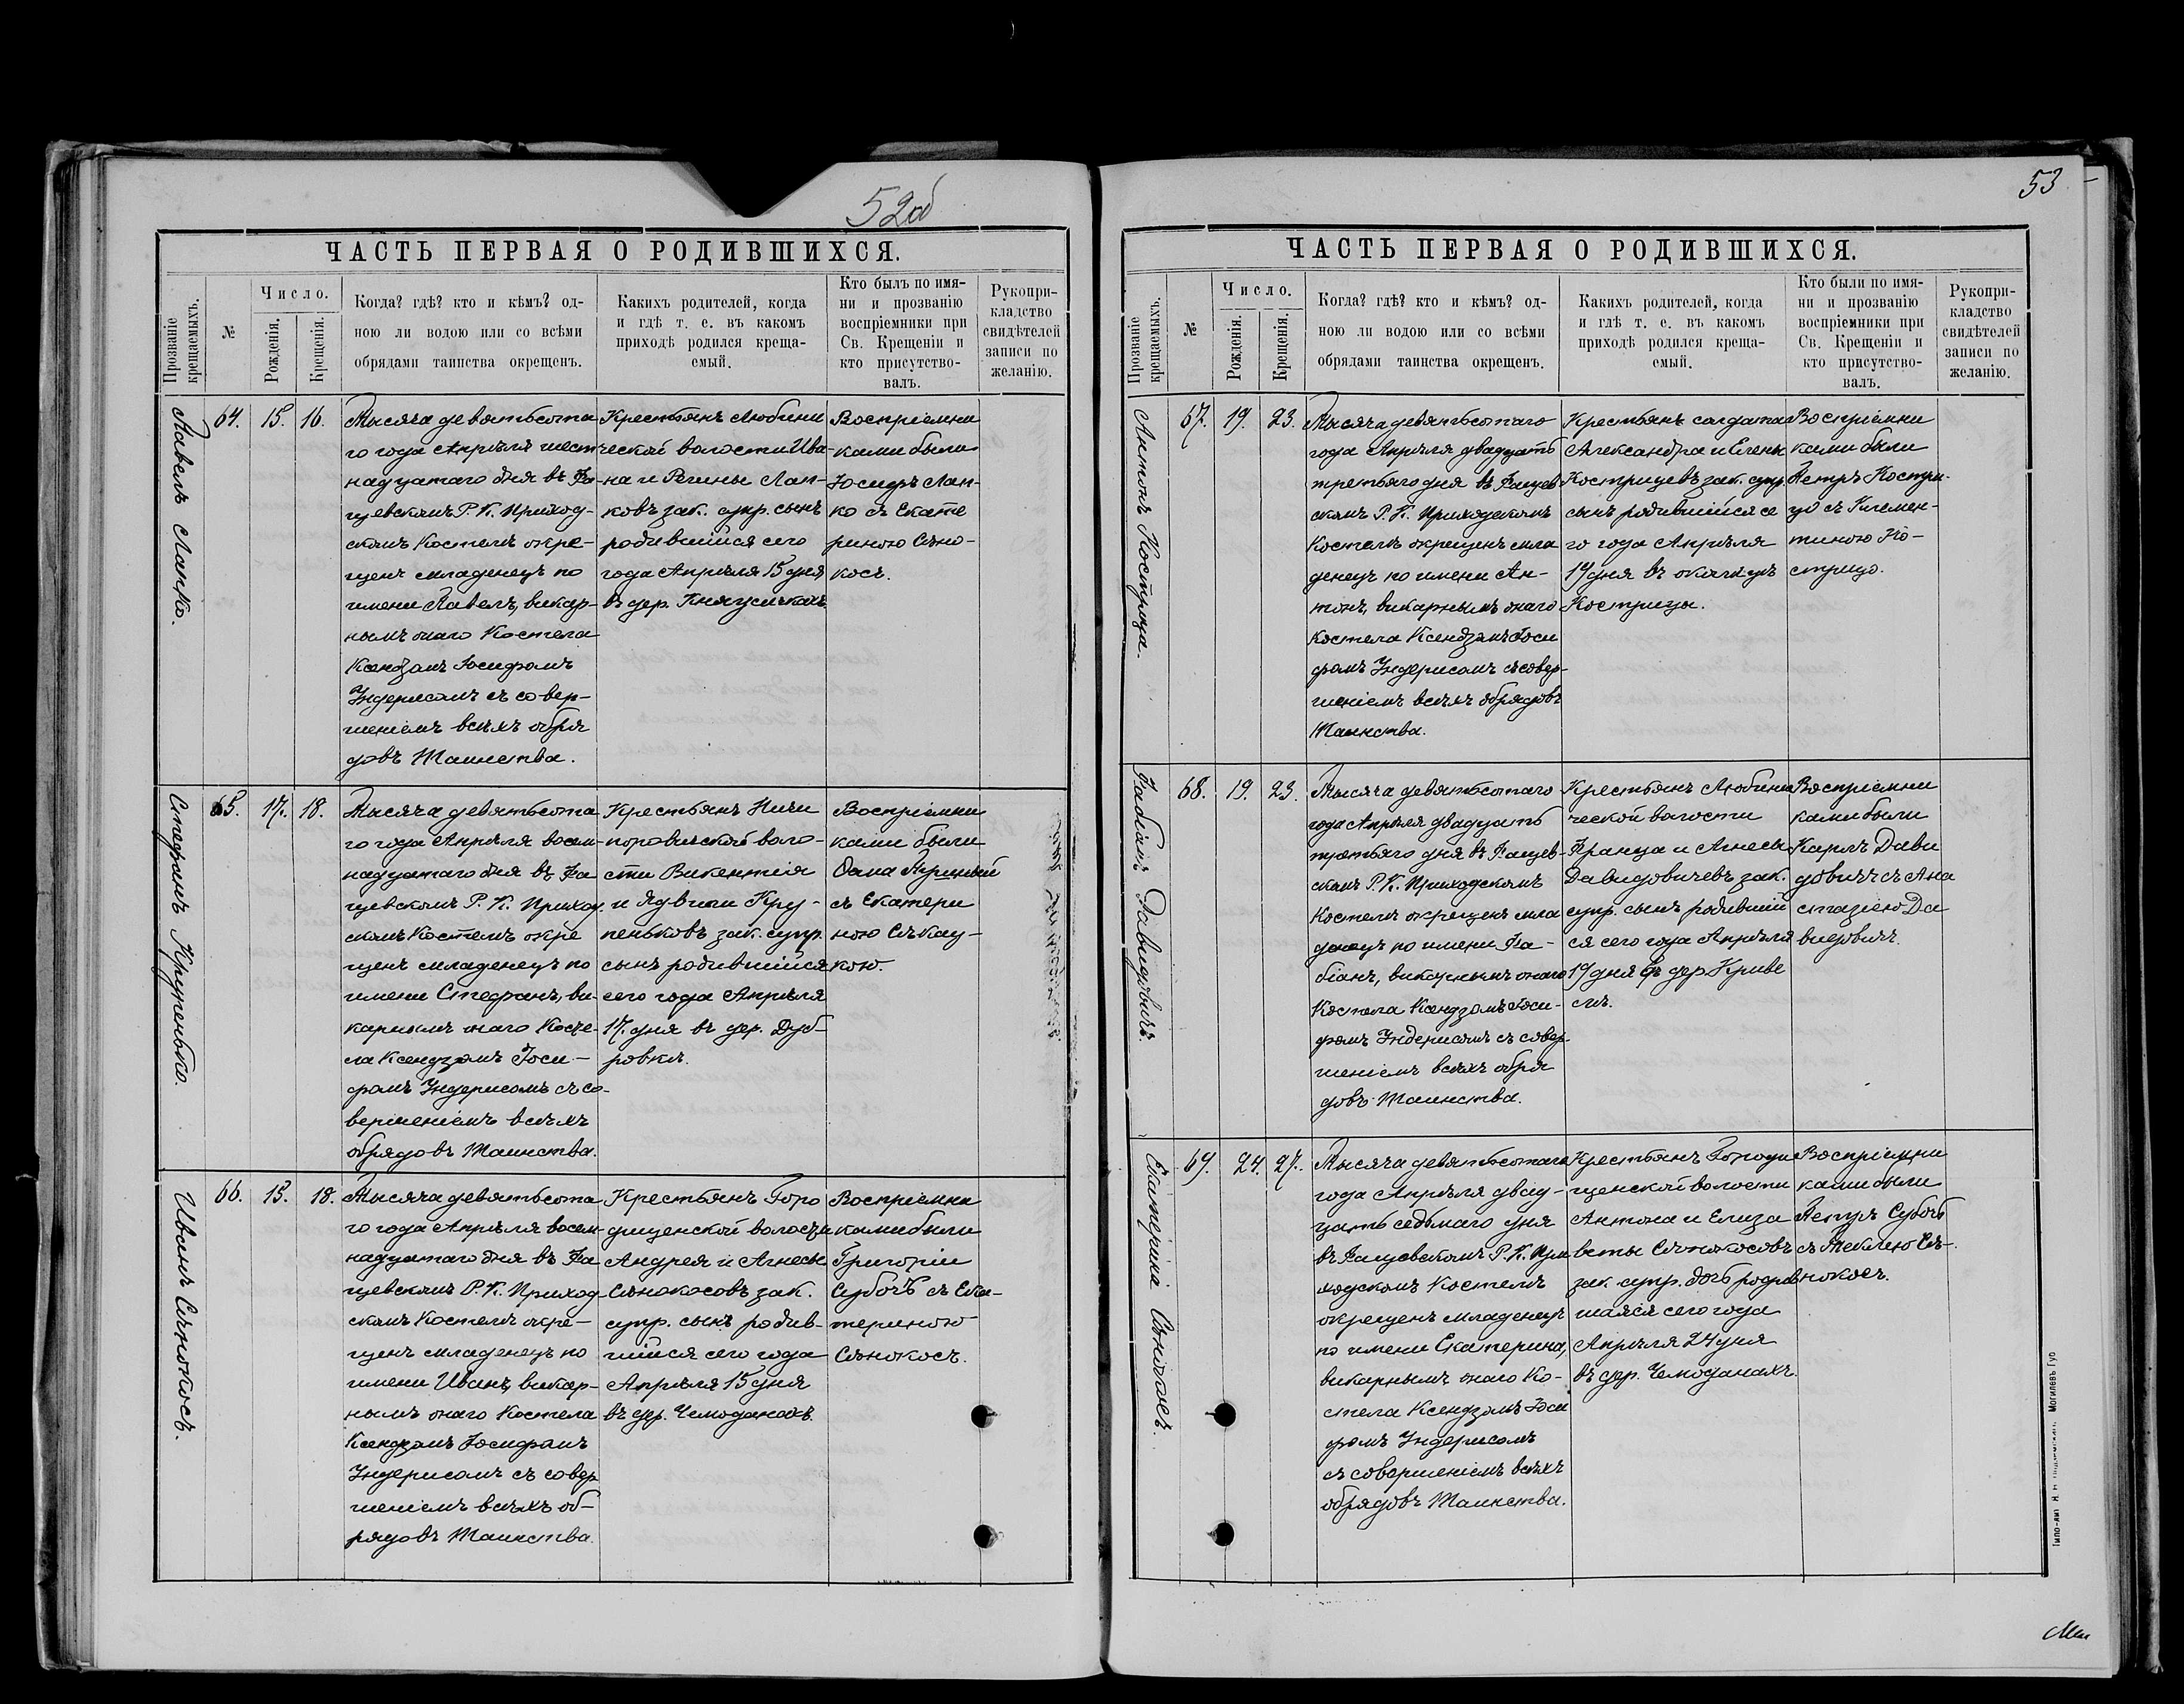 52об
ЧАСТЬ ПЕРВАЯ О РОДИВШИХСЯ.
Прозваніе крещаемыхъ.
№
Число.
Рожденія.
Крещенія.
Когда? гдѣ? кто и кѣмъ? од-
ною ли водою или со всѣми
обрядами таинства окрещенъ.
Какихъ родителей, когда
и гдѣ т. е. въ какомъ
приходѣ родился креща-
емый.
Кто былъ по имя-
ни и прозванію
воспріемники при
Св. Крещеніи и
кто присутство-
валъ.
Рукопри-
кладство
свидѣтелей
записи по
желанію.
Павелъ Лапко.
64.
15.
16.
Тысяча девятьсота
го года Апрѣля шест
надцатаго дня въ Фа-
щевскомъ Р. К. Приход-
скомъ Костелѣ окре-
щенъ младенецъ по
имени Павелъ, викар-
нымъ онаго Костела
Ксендзомъ Іосифомъ
Индерисомъ съ совер-
шеніемъ всѣхъ обря
довъ Таинства.
Крестьянъ Любини
ческой волости Ива-
на и Регины Лап-
ковъ зак. супр. сынъ
родившійся сего
года Апрѣля 15 дня
въ дер. Княжичкахъ
Воспріемни
ками были
Іосифъ Лап-
ко съ Екате
риною Сѣно-
косъ.
Стефанъ Крупенько.
65.
17.
18.
Тысяча девятьсота
го года Апрѣля восем-
надцатаго дня въ Фа
щевскомъ Р. К. Приход.
скомъ Костелѣ окре
щенъ младенецъ по
имени Стефанъ, ви-
карнымъ онаго Косте-
ла Ксендзомъ Іоси-
фомъ Индерисомъ съ со-
вершеніемъ всѣхъ
обрядовъ Таинства.
Крестьянъ Ничи
поровичской воло-
сти Викентія
и Ядвиги Кру-
пеньковъ зак. супр.
сынъ родившійся
сего года Апрѣля
17. дня въ дер. Дуб-
ровкѣ.
Воспріемни
ками были
Фома
съ Екатери
ною
кою.
Иванъ Сѣнокосъ.
66.
15.
18.
Тысяча девятьсота
го года Апрѣля восем-
надцатаго дня въ Фа
щевскомъ Р. К. Приход-
скомъ Костелѣ окре-
щенъ младенецъ по
имени Иванъ, викар-
нымъ онаго Костела
Ксендзомъ Іосифомъ
Индерисомъ съ совер
шеніемъ всѣхъ об-
рядовъ Таинства.
Крестьянъ Горо
дищенской волости
Андрея и Агнесы
Сѣнокосовъ зак.
супр. сынъ родив-
шійся сего года
Апрѣля 15 дня
въ дер. Чемоданахъ.
Воспріемни
ками были
Григорій
Субочъ съ Ека-
териною
Сѣнокосъ.
53
ЧАСТЬ ПЕРВАЯ О РОДИВШИХСЯ.
Прозваніе крещаемыхъ.
№
Число.
Рожденія.
Крещенія.
Когда? гдѣ? кто и кѣмъ? од-
ною ли водою или со всѣми
обрядами таинства окрещенъ.
Какихъ родителей, когда
и гдѣ т. е. въ какомъ
приходѣ родился креща-
емый.
Кто были по имя-
ни и прозванію
воспріемники при
Св. Крещеніи и
кто присутство-
валъ.
Рукопри-
кладство
свидѣтелей
записи по
желанію.
Антонъ Кострица.
67.
19.
23.
Тысяча девятьсотаго
года Апрѣля двадцать
третьяго дня въ Фащев
скомъ Р. К. Приходскомъ
Костелѣ окрещенъ мла
денецъ по имени Ан-
тонъ, викарнымъ онаго
Костела Ксендзомъ Іоси
фомъ Индерисомъ съ совер-
шеніемъ всѣхъ обрядовъ
Таинства.
Крестьянъ солдата
Александра и Елены
Кострицевъ зак. супр
сынъ родившійся се
го года Апрѣля
19 дня въ околицѣ
Кострицы.
Воспріемни
ками были
Петръ Костри-
цо съ Климен-
тиною Ко-
стрицо.
Фабіанъ Давидовичъ.
68.
19.
23.
Тысяча девятьсотаго
года Апрѣля двадцать
третьяго дня въ Фащев-
скомъ Р. К. Приходскомъ
Костелѣ окрещенъ мла
денецъ по имени Фа-
біанъ, викарнымъ онаго
Костела Ксендзомъ Іоси-
фомъ Индерисомъ съ совер-
шеніемъ всѣхъ обря
довъ Таинства.
Крестьянъ Любини
ческой волости
Франца и Агнесы
Давидовичевъ зак.
супр. сынъ родившій
ся сего года Апрѣля
19 дня въ дер Криве
лѣ.
Воспріемни
ками были
Карлъ Дави
довичъ съ Ана
стазіею Да
видовичъ.
Екатерина Сѣнокосъ.
69.
24.
27.
Тысяча девятьсотаго
года Апрѣля двад-
цать седьмаго дня
въ Фащевскомъ Р. К. При
ходскомъ Костелѣ
окрещенъ младенецъ
по имени Екатерина,
викарнымъ онаго Ко-
стела Ксендзомъ Іоси
фомъ Индерисомъ
съ совершеніемъ всѣхъ
обрядовъ Таинства.
Крестьянъ Городи
щенской волости
Антона и Елиза
веты Сѣнокосовъ
зак. супр. дочь родив
шаяся сего года
Апрѣля 24 дня
въ дер. Чемоданахъ.
Воспріемни
ками были
Петръ Субочъ
съ Теклею Сѣ-
нокосъ.
Могилевъ Губ